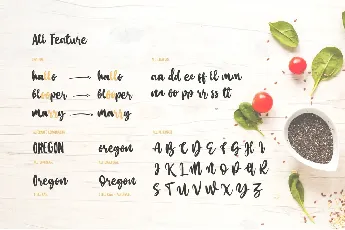 All Feature
hallo hallo
blooper blooper
marry marry
aa dd ee ff ll mm
nn oo pp rr ss tt
OREGON oregon
Oregon Oregon
A B C D E F G H I
J K L M N O P Q R
S T U V W X Y Z